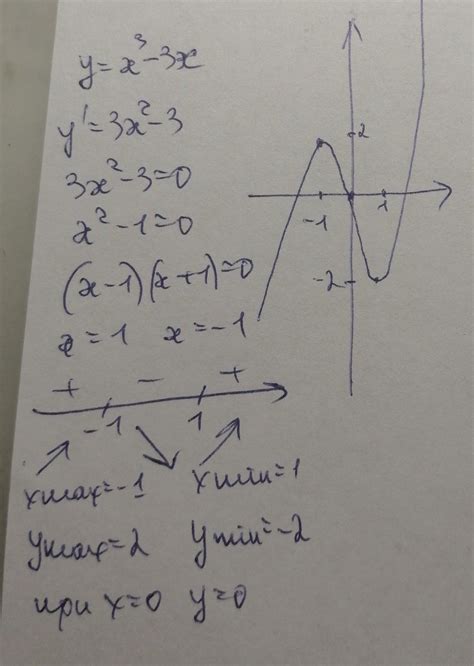 y=x³-3x
y'=3x²-3
3x²-3=0
x²-1=0
(x-1)(x+1)=0
x=1 x=-1
+ - +
-1 1
xmax=-1 xmin=1
ymax=2 ymin=-2
при x=0 y=0
2
-1 1
-2